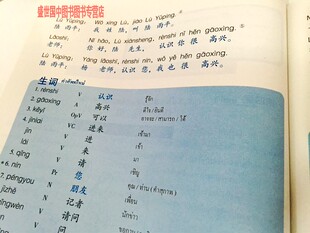 盛世国中图图书专营店
Lù Yǔpíng: Wǒ xìng Lù, jiào Lù Yǔpíng.
陆雨平: 我姓陆,叫陆雨平。
Lǎoshī: Nǐ hǎo, Lù xiānsheng, rènshi nǐ hěn gāoxìng.
老师: 你好,陆先生,认识你很高兴。
Lù Yǔpíng: Yáng lǎoshī, rènshi nín, wǒ yě hěn gāoxìng.
陆雨平: 杨老师,认识您,我也很高兴。
生词 คำศัพท์ใหม่
1. rènshi V 认识 รู้จัก
2. gāoxìng A 高兴 ดีใจ
3. kěyǐ OpV 可以 อาจจะ / สามารถ / ได้
4. jìnlai VC 进来 เข้ามา
jìn V 进 เข้า
lái V 来 มา
5. qǐng V 请 เชิญ
*6. nín Pr 您 คุณ / ท่าน (คำสุภาพ)
7. péngyou N 朋友 เพื่อน
jìzhě N 记者 นักข่าว
qǐngwèn V 请问
wèn V 问